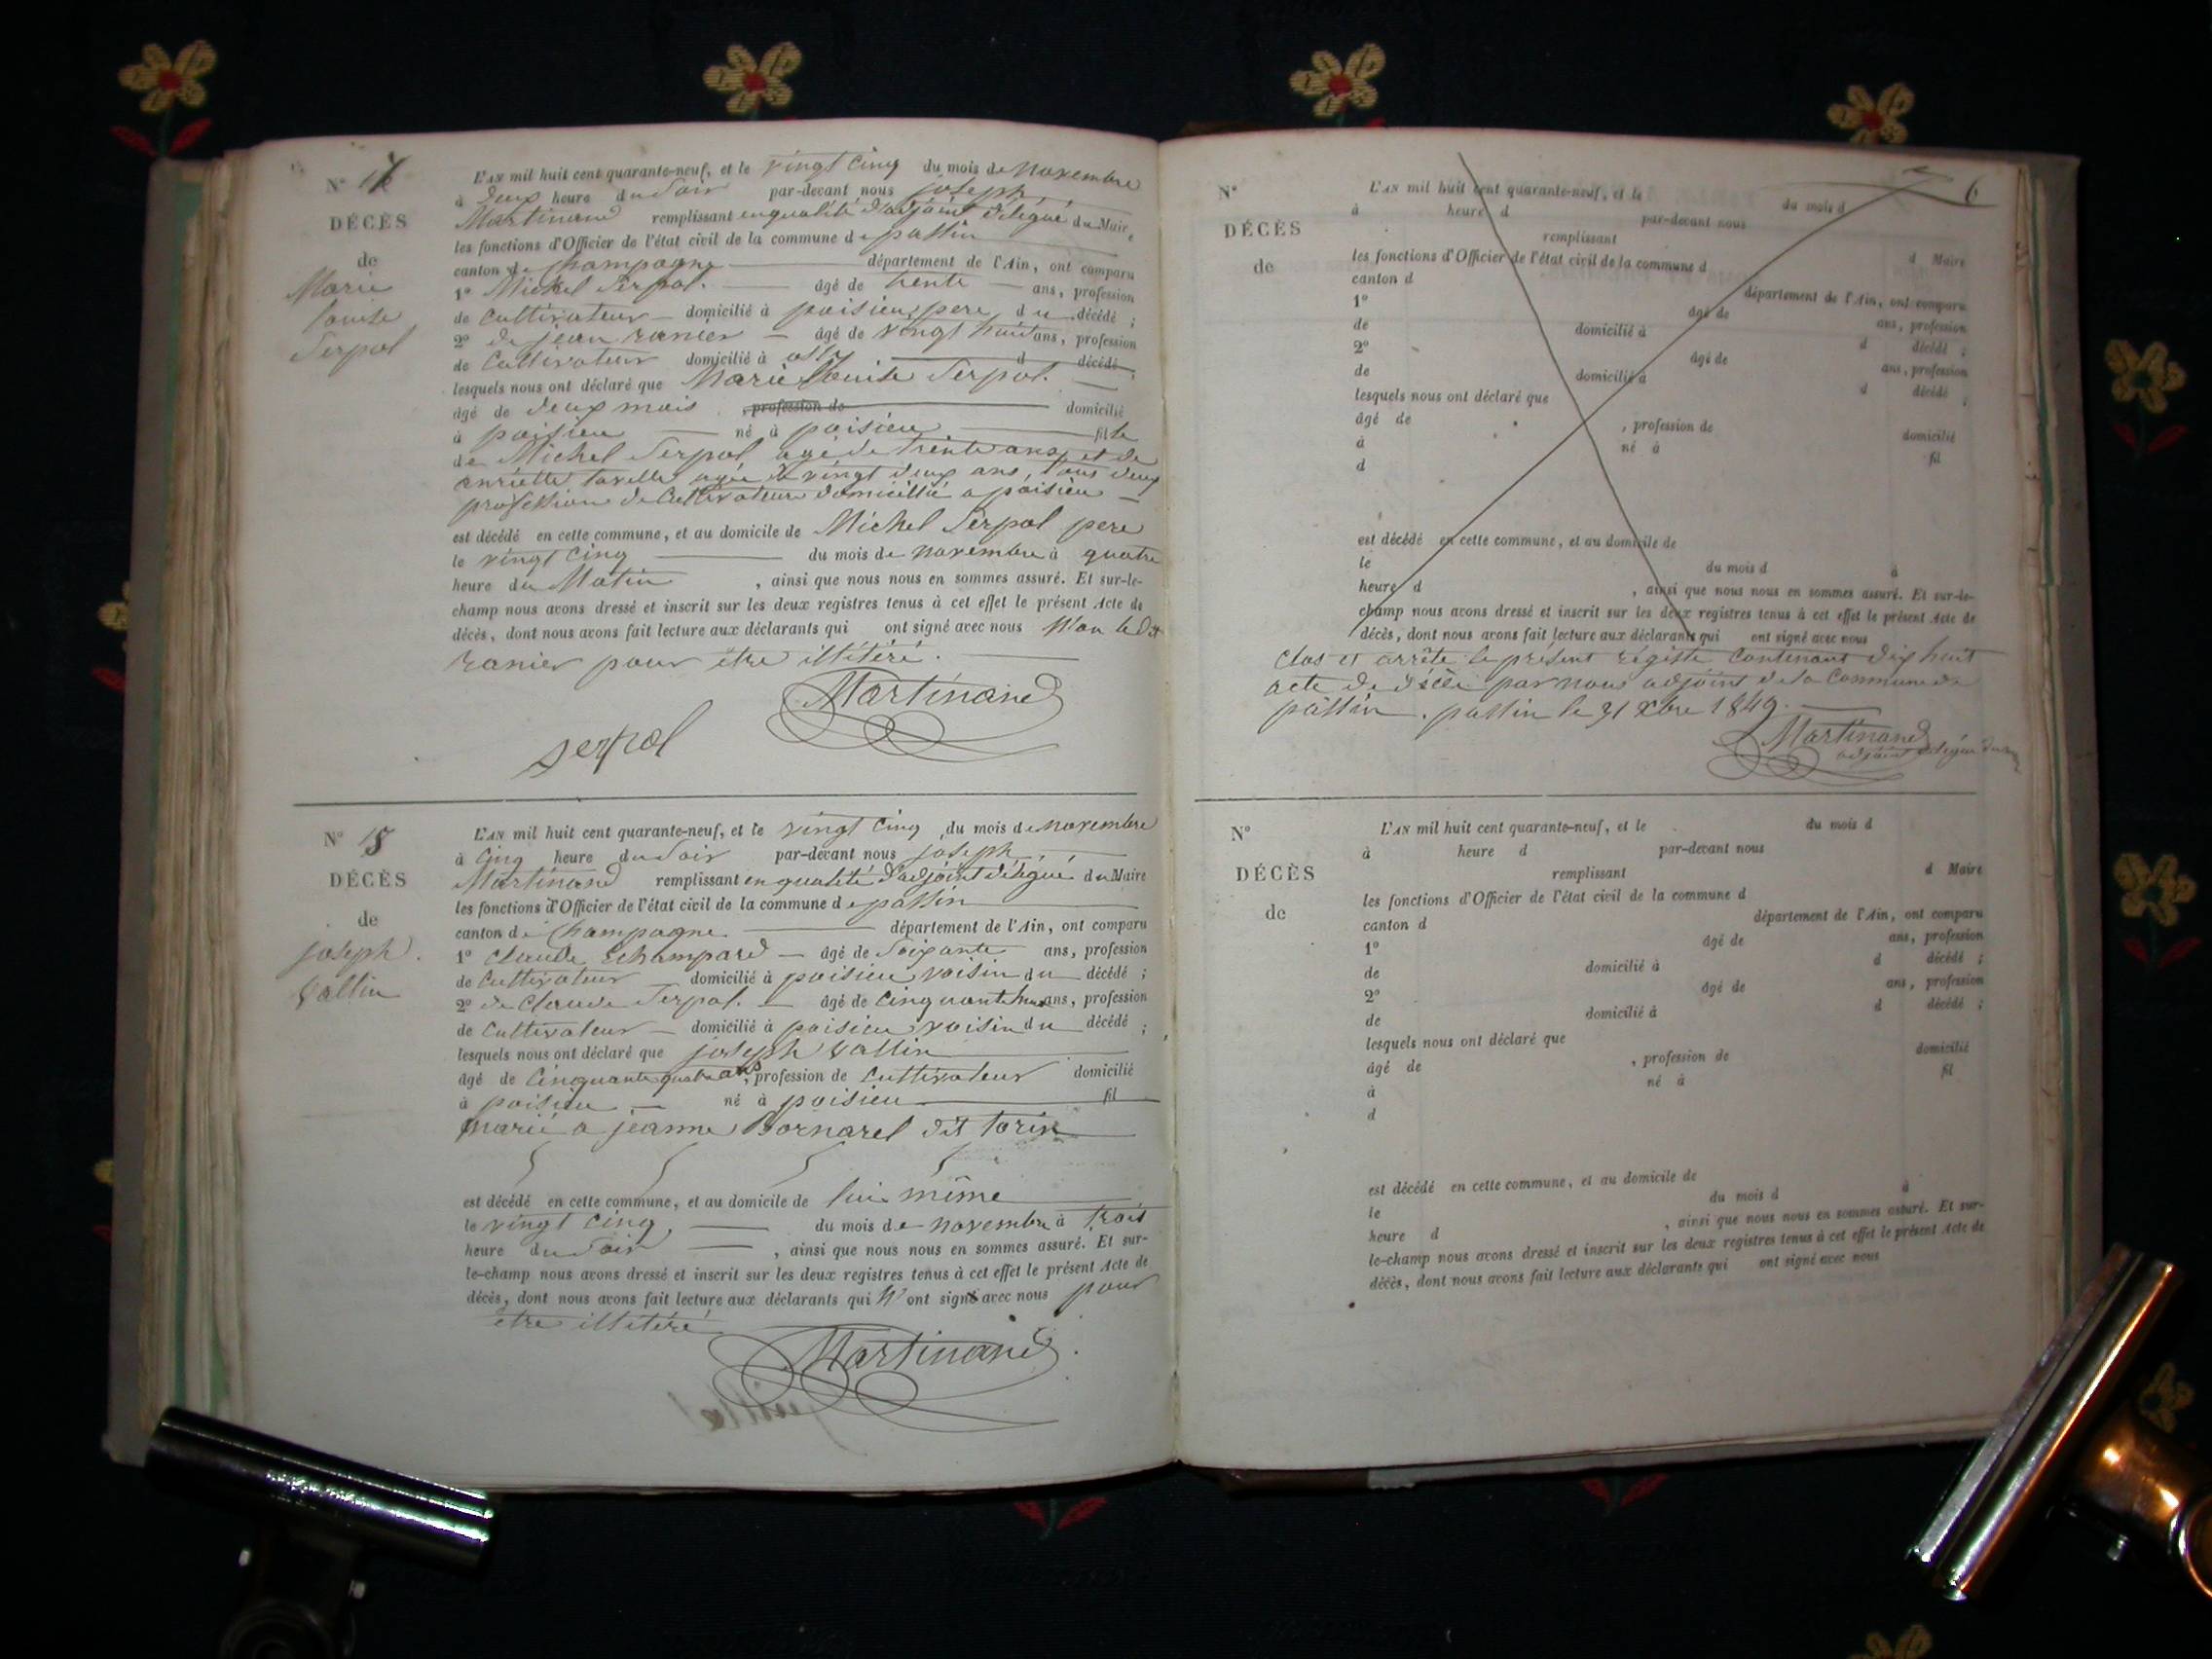 L'AN mil huit cent quarante-neuf, et le vingt cinq du mois de novembre
à deux heure du Soir par-devant nous joseph
Martinand remplissant en qualité d'adjoint délégué du Maire
les fonctions d'Officier de l'état civil de la commune de passin
canton de Champagne département de l'Ain, ont comparu
1° Michel Serpol. âgé de trente ans, profession
de Cultivateur domicilié à poisieu pere du décédé ;
2° de jean ranier âgé de vingt huit ans, profession
de Cultivateur domicilié à d décédé ;
lesquels nous ont déclaré que Marie Louise Serpol.
âgé de deux mois , profession de domicilié
à poisieu né à poisieu fille
de Michel Serpol agé de trente ans, et de
enriette tavelle agée de vingt deux ans, tous deux
profession de Cultivateur domicillié a poisieu
est décédé en cette commune, et au domicile de Michel Serpol pere
le vingt cinq du mois de novembre à quatre
heure du Matin , ainsi que nous nous en sommes assuré. Et sur-le-
champ nous avons dressé et inscrit sur les deux registres tenus à cet effet le présent Acte de
décès, dont nous avons fait lecture aux déclarants qui ont signé avec nous
ranier pour être illitéré.
Martinand
serpol
N°
DÉCÈS
de
Marie
Louise
Serpol
N° 18
DÉCÈS
de
joseph
Vallin
L'AN mil huit cent quarante-neuf, et le vingt cinq du mois de novembre
à Cinq heure du Soir par-devant nous joseph
Martinand remplissant en qualité d'adjoint délégué du Maire
les fonctions d'Officier de l'état civil de la commune de passin
canton de Champagne département de l'Ain, ont comparu
1° Claude Echampard âgé de Soixante ans, profession
de Cultivateur domicilié à poisieu voisin du décédé ;
2° de Claude Serpol. âgé de Cinquante ans, profession
de Cultivateur domicilié à poisieu voisin du décédé ;
lesquels nous ont déclaré que joseph Vallin
âgé de Cinquante quatre ans, profession de Cultivateur domicilié
à poisieu né à poisieu fil
marié a jeanne Bornarel dit torin
est décédé en cette commune, et au domicile de lui même
le vingt cinq, du mois de novembre à trois
heure du Soir , ainsi que nous nous en sommes assuré. Et sur-
le-champ nous avons dressé et inscrit sur les deux registres tenus à cet effet le présent Acte de
décès, dont nous avons fait lecture aux déclarants qui n'ont signé avec nous pour
être illitéré
Martinand
6
N°
DÉCÈS
de
L'AN mil huit cent quarante-neuf, et le du mois d
à heure d par-devant nous
remplissant d Maire
les fonctions d'Officier de l'état civil de la commune d
canton d département de l'Ain, ont comparu
1° âgé de ans, profession
de domicilié à d décédé ;
2° âgé de ans, profession
de domicilié à d décédé ;
lesquels nous ont déclaré que
âgé de , profession de domicilié
à né à fil
d
est décédé en cette commune, et au domicile de
le du mois d à
heure d , ainsi que nous nous en sommes assuré. Et sur-le-
champ nous avons dressé et inscrit sur les deux registres tenus à cet effet le présent Acte de
décès, dont nous avons fait lecture aux déclarants qui ont signé avec nous
Clos et arrête le présent régiste Contenant dix huit
acte de décés par nous adjoint de la Commune de
passin. passin le 31 Xbre 1849.
Martinand
adjoint délégué
N°
DÉCÈS
de
L'AN mil huit cent quarante-neuf, et le du mois d
à heure d par-devant nous
remplissant d Maire
les fonctions d'Officier de l'état civil de la commune d
canton d département de l'Ain, ont comparu
1° âgé de ans, profession
de domicilié à d décédé ;
2° âgé de ans, profession
de domicilié à d décédé ;
lesquels nous ont déclaré que
âgé de , profession de domicilié
à né à fil
d
est décédé en cette commune, et au domicile de
le du mois d à
heure d , ainsi que nous nous en sommes assuré. Et sur-
le-champ nous avons dressé et inscrit sur les deux registres tenus à cet effet le présent Acte de
décès, dont nous avons fait lecture aux déclarants qui ont signé avec nous